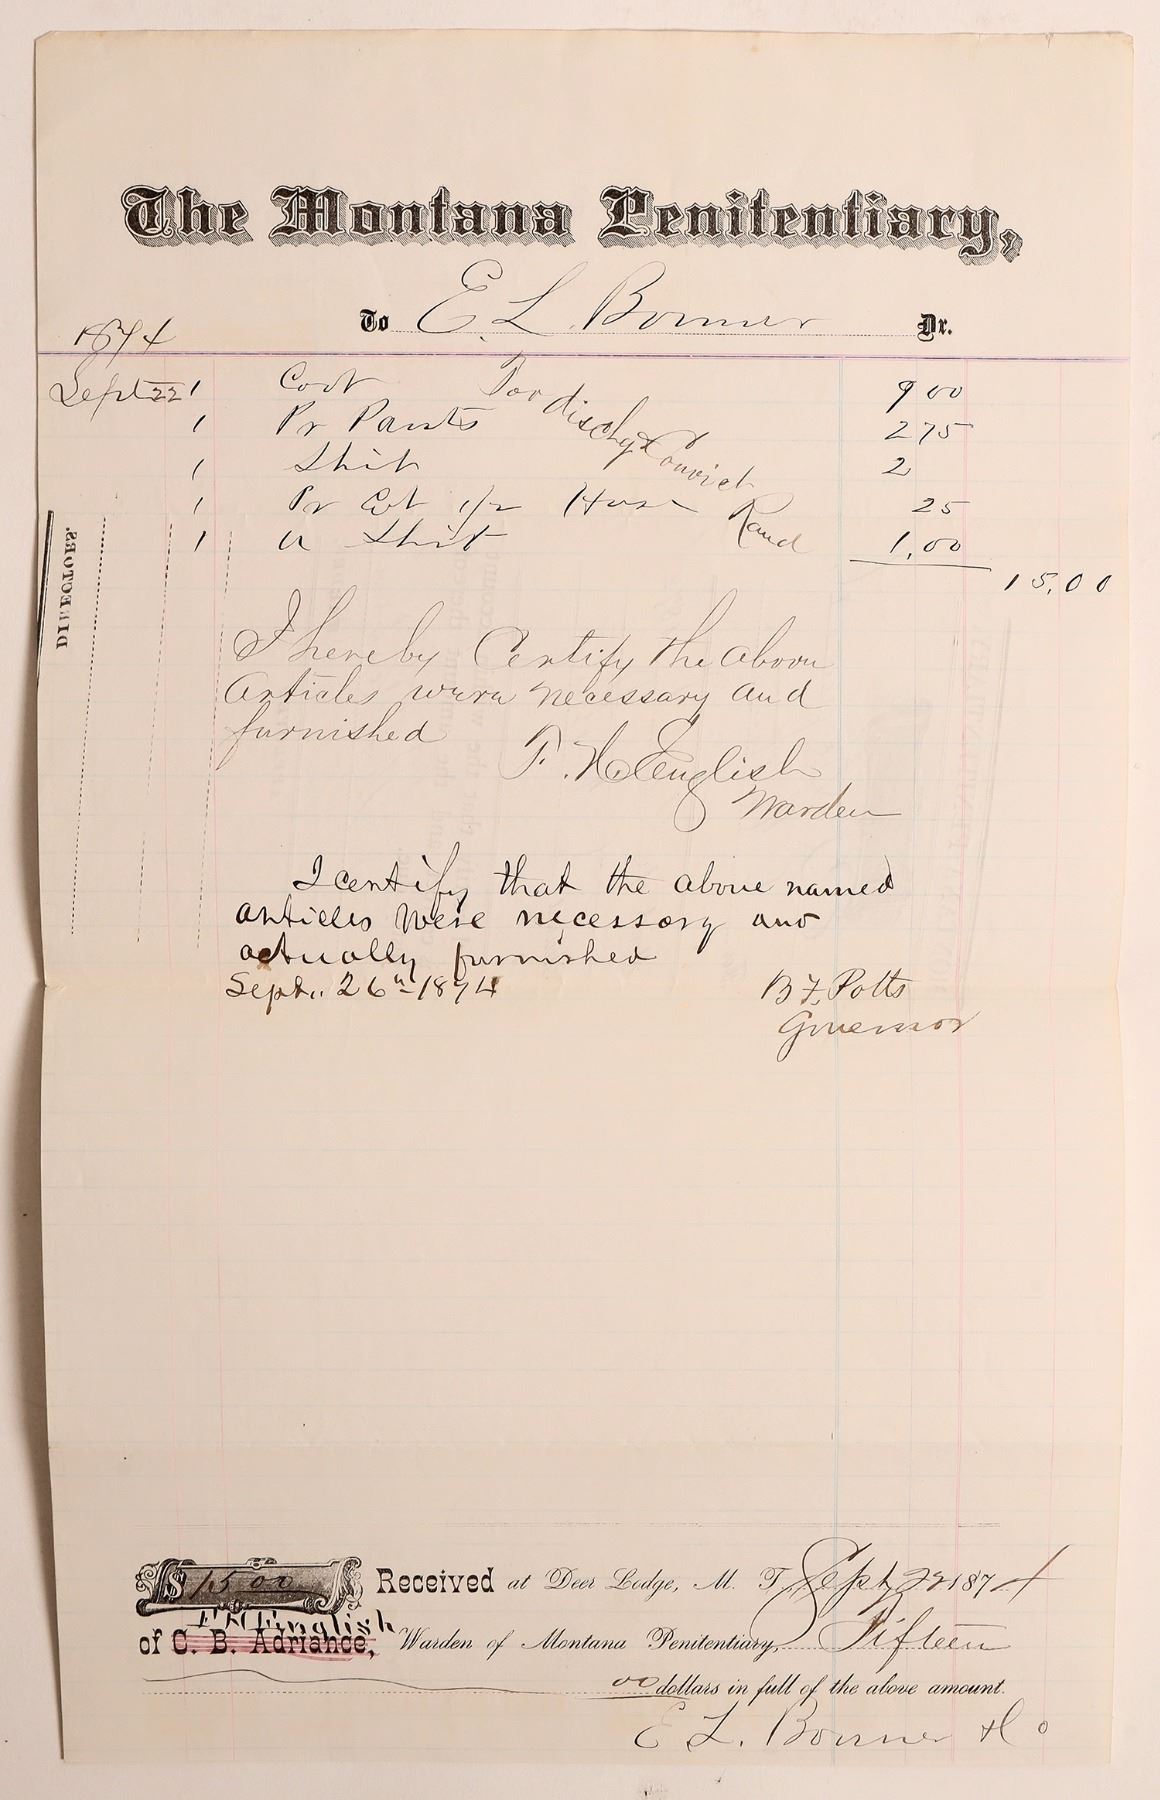 The Montana Penitentiary,
To E. L. Bonner Dr.
1874
Sept 22 1 Coat 9 00
1 Pr Pants 2 75
1 Shirt 2
1 Pr Cot 1/2 Hose 25
1 U Shirt 1.00
For dischg Convict
Rand
15.00
DIRECTORS.
I hereby Certify the above
Articles were necessary and
furnished
F. H. English
Warden
I certify that the above named
articles were necessary and
actually furnished
Sept. 26th 1874 B F. Potts
Governor
$ 15 00 Received at Deer Lodge, M. T, Sept 22 1874
F H English
of C. B. Adriance, Warden of Montana Penitentiary, Fifteen
00 dollars in full of the above amount.
E L. Bonner & Co